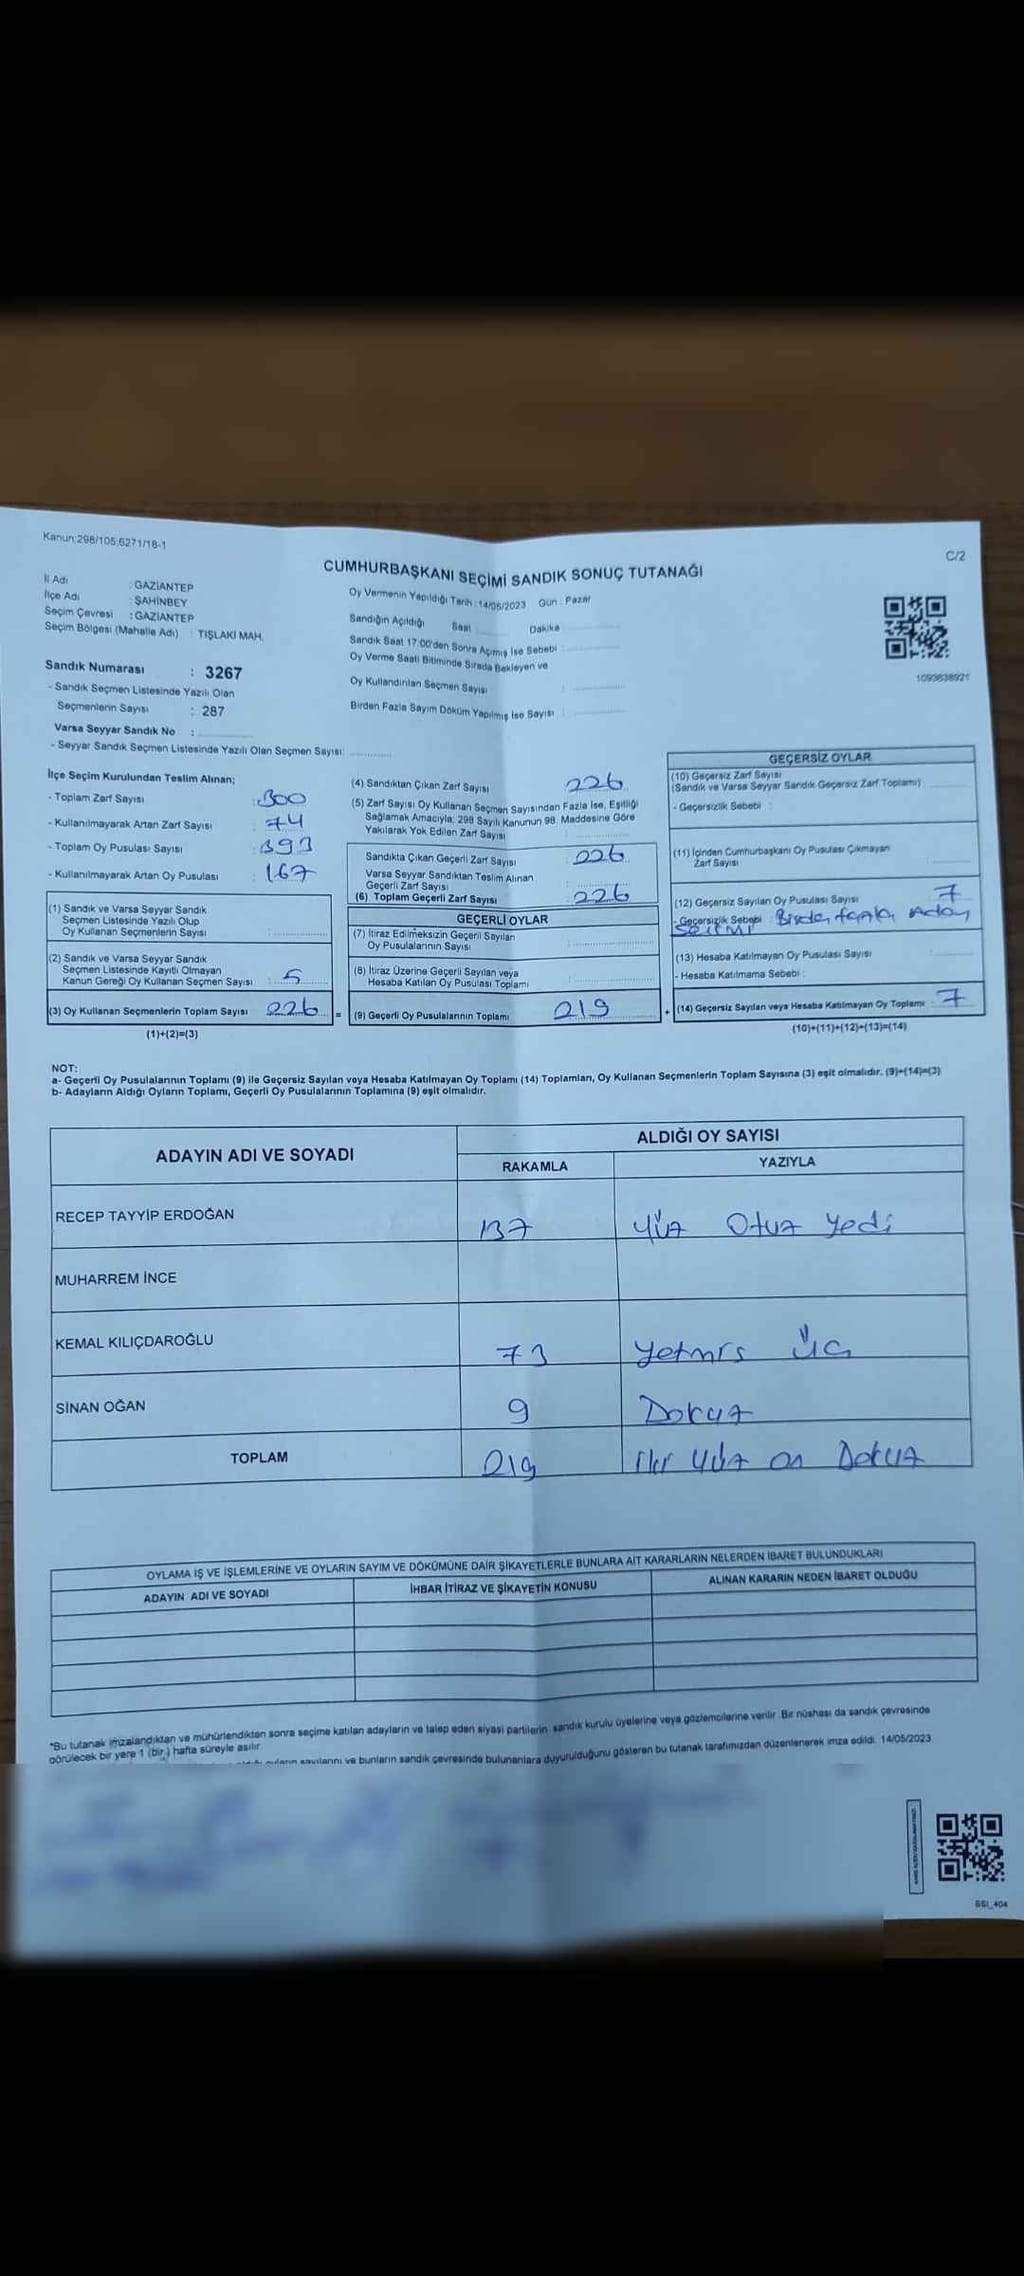 Kanun:298/105;6271/18-1
C/2
CUMHURBAŞKANI SEÇİMİ SANDIK SONUÇ TUTANAĞI
İl Adı : GAZİANTEP
İlçe Adı : ŞAHİNBEY
Seçim Çevresi : GAZİANTEP
Seçim Bölgesi (Mahalle Adı) : TIŞLAKİ MAH.
Oy Vermenin Yapıldığı Tarih : 14/05/2023 Gün : Pazar
Sandığın Açıldığı Saat Dakika
Sandık Saat 17:00'den Sonra Açımış İse Sebebi :
Oy Verme Saati Bitiminde Sırada Bekleyen ve
Oy Kullandırılan Seçmen Sayısı :
Birden Fazla Sayım Döküm Yapılmış İse Sayısı :
1093638921
Sandık Numarası : 3267
- Sandık Seçmen Listesinde Yazılı Olan
Seçmenlerin Sayısı : 287
Varsa Seyyar Sandık No :
- Seyyar Sandık Seçmen Listesinde Yazılı Olan Seçmen Sayısı:
İlçe Seçim Kurulundan Teslim Alınan;
- Toplam Zarf Sayısı : 300
- Kullanılmayarak Artan Zarf Sayısı : 74
- Toplam Oy Pusulası Sayısı : 393
- Kullanılmayarak Artan Oy Pusulası : 167
(1) Sandık ve Varsa Seyyar Sandık
Seçmen Listesinde Yazılı Olup
Oy Kullanan Seçmenlerin Sayısı :
(2) Sandık ve Varsa Seyyar Sandık
Seçmen Listesinde Kayıtlı Olmayan
Kanun Gereği Oy Kullanan Seçmen Sayısı : 5
(3) Oy Kullanan Seçmenlerin Toplam Sayısı 226 =
(1)+(2)=(3)
(4) Sandıktan Çıkan Zarf Sayısı 226
(5) Zarf Sayısı Oy Kullanan Seçmen Sayısından Fazla İse, Eşitliği
Sağlamak Amacıyla; 298 Sayılı Kanunun 98. Maddesine Göre
Yakılarak Yok Edilen Zarf Sayısı :
Sandıkta Çıkan Geçerli Zarf Sayısı : 226
Varsa Seyyar Sandıktan Teslim Alınan
Geçerli Zarf Sayısı :
(6) Toplam Geçerli Zarf Sayısı : 226
GEÇERLİ OYLAR
(7) İtiraz Edilmeksizin Geçerli Sayılan
Oy Pusulalarının Sayısı :
(8) İtiraz Üzerine Geçerli Sayılan veya
Hesaba Katılan Oy Pusulası Toplamı :
(9) Geçerli Oy Pusulalarının Toplamı 219 +
GEÇERSİZ OYLAR
(10) Geçersiz Zarf Sayısı
(Sandık ve Varsa Seyyar Sandık Geçersiz Zarf Toplamı) :
- Geçersizlik Sebebi :
(11) İçinden Cumhurbaşkanı Oy Pusulası Çıkmayan
Zarf Sayısı :
(12) Geçersiz Sayılan Oy Pusulası Sayısı : 7
- Geçersizlik Sebebi : Birden fazla Aday
Seçimi
(13) Hesaba Katılmayan Oy Pusulası Sayısı :
- Hesaba Katılmama Sebebi :
(14) Geçersiz Sayılan veya Hesaba Katılmayan Oy Toplamı : 7
(10)+(11)+(12)+(13)=(14)
NOT:
a- Geçerli Oy Pusulalarının Toplamı (9) ile Geçersiz Sayılan veya Hesaba Katılmayan Oy Toplamı (14) Toplamları, Oy Kullanan Seçmenlerin Toplam Sayısına (3) eşit olmalıdır. (9)+(14)=(3)
b- Adayların Aldığı Oyların Toplamı, Geçerli Oy Pusulalarının Toplamına (9) eşit olmalıdır.
ADAYIN ADI VE SOYADI
ALDIĞI OY SAYISI
RAKAMLA YAZIYLA
RECEP TAYYİP ERDOĞAN 137 Yüz Otuz Yedi
MUHARREM İNCE
KEMAL KILIÇDAROĞLU 73 Yetmiş Üç
SİNAN OĞAN 9 Dokuz
TOPLAM 219 İki Yüz on Dokuz
OYLAMA İŞ VE İŞLEMLERİNE VE OYLARIN SAYIM VE DÖKÜMÜNE DAİR ŞİKAYETLERLE BUNLARA AİT KARARLARIN NELERDEN İBARET BULUNDUKLARI
ADAYIN ADI VE SOYADI İHBAR İTİRAZ VE ŞİKAYETİN KONUSU ALINAN KARARIN NEDEN İBARET OLDUĞU
*Bu tutanak imzalandıktan ve mühürlendikten sonra seçime katılan adayların ve talep eden siyasi partilerin sandık kurulu üyelerine veya gözlemcilerine verilir. Bir nüshası da sandık çevresinde
görülecek bir yere 1 (bir) hafta süreyle asılır.
oyların sayılarını ve bunların sandık çevresinde bulunanlara duyurulduğunu gösteren bu tutanak tarafımızdan düzenlenerek imza edildi. 14/05/2023
SSI_404